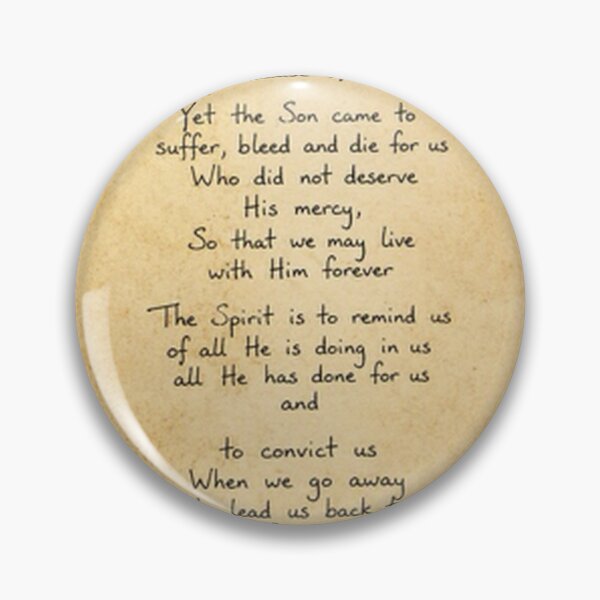 Yet the Son came to
suffer, bleed and die for us
Who did not deserve
His mercy,
So that we may live
with Him forever
The Spirit is to remind us
of all He is doing in us
all He has done for us
and
to convict us
When we go away
lead us back